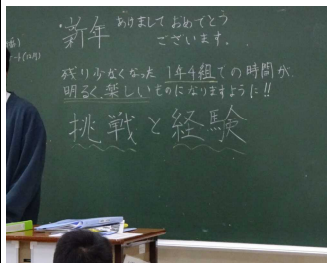 ・新年 あけまして おめでとう
ございます。
残り少なくなった 1年4組での時間が、
明るく、楽しいものになりますように!!
挑戦と経験